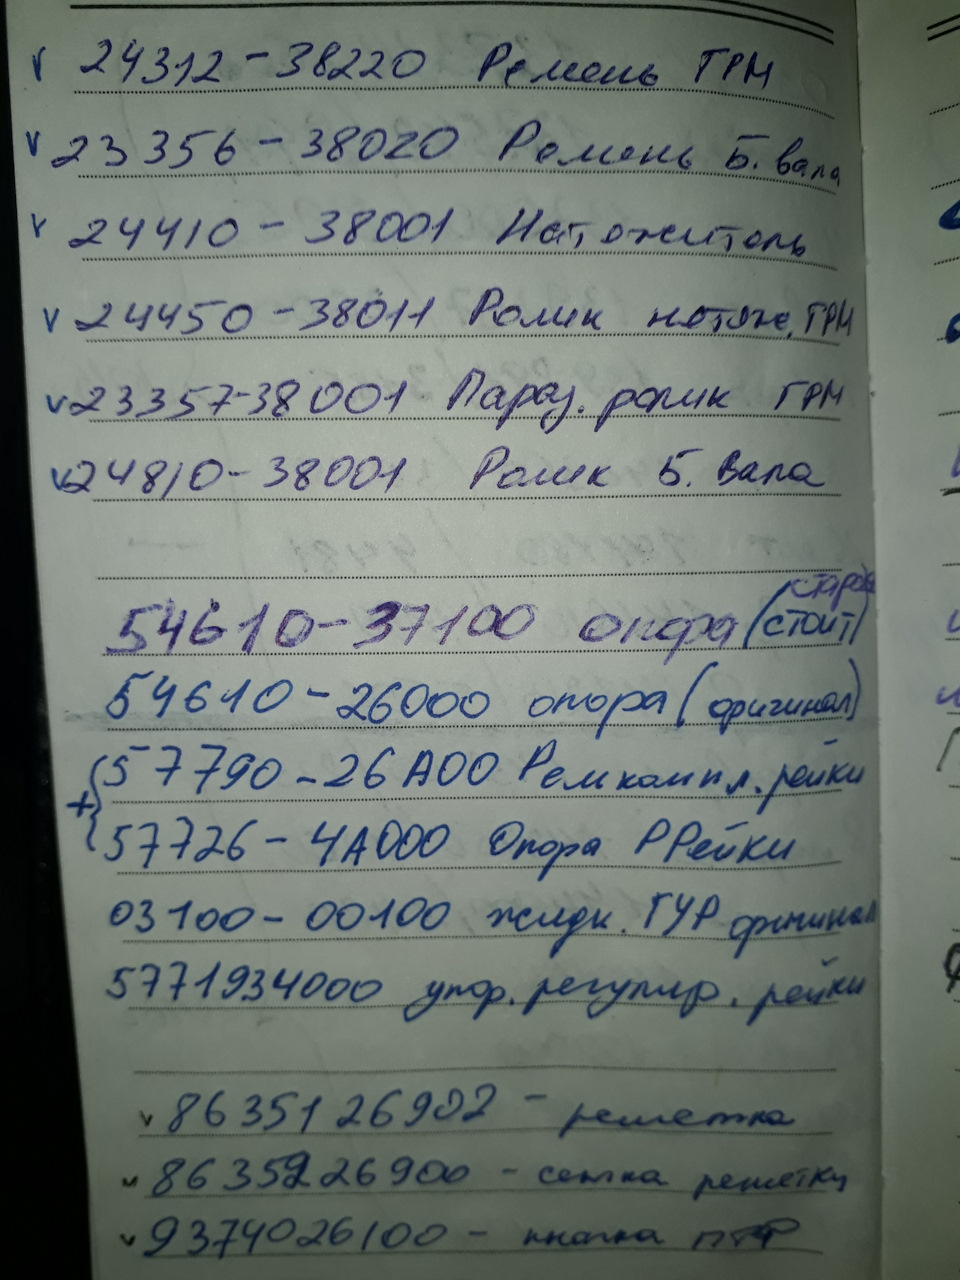 v 24312-38220 Ремень ГРМ
v 23356-38020 Ремень Б. вала
v 24410-38001 Натяжитель
v 24450-38011 Ролик натяж. ГРМ
v 23357-38001 Параз. ролик ГРМ
v 24810-38001 Ролик Б. Вала
54610-37100 опора (старое стоит)
54610-26000 опора (оригинал)
+{ 57790-26A00 Ремкомпл. рейки
57726-4A000 Опора Р Рейки
03100-00100 жидк. ГУР оригинал
5771934000 упор. регулир. рейки
v 8635126902 - решетка
v 8635226900 - сетка решетки
v 9374026100 - кнопка ПТФ